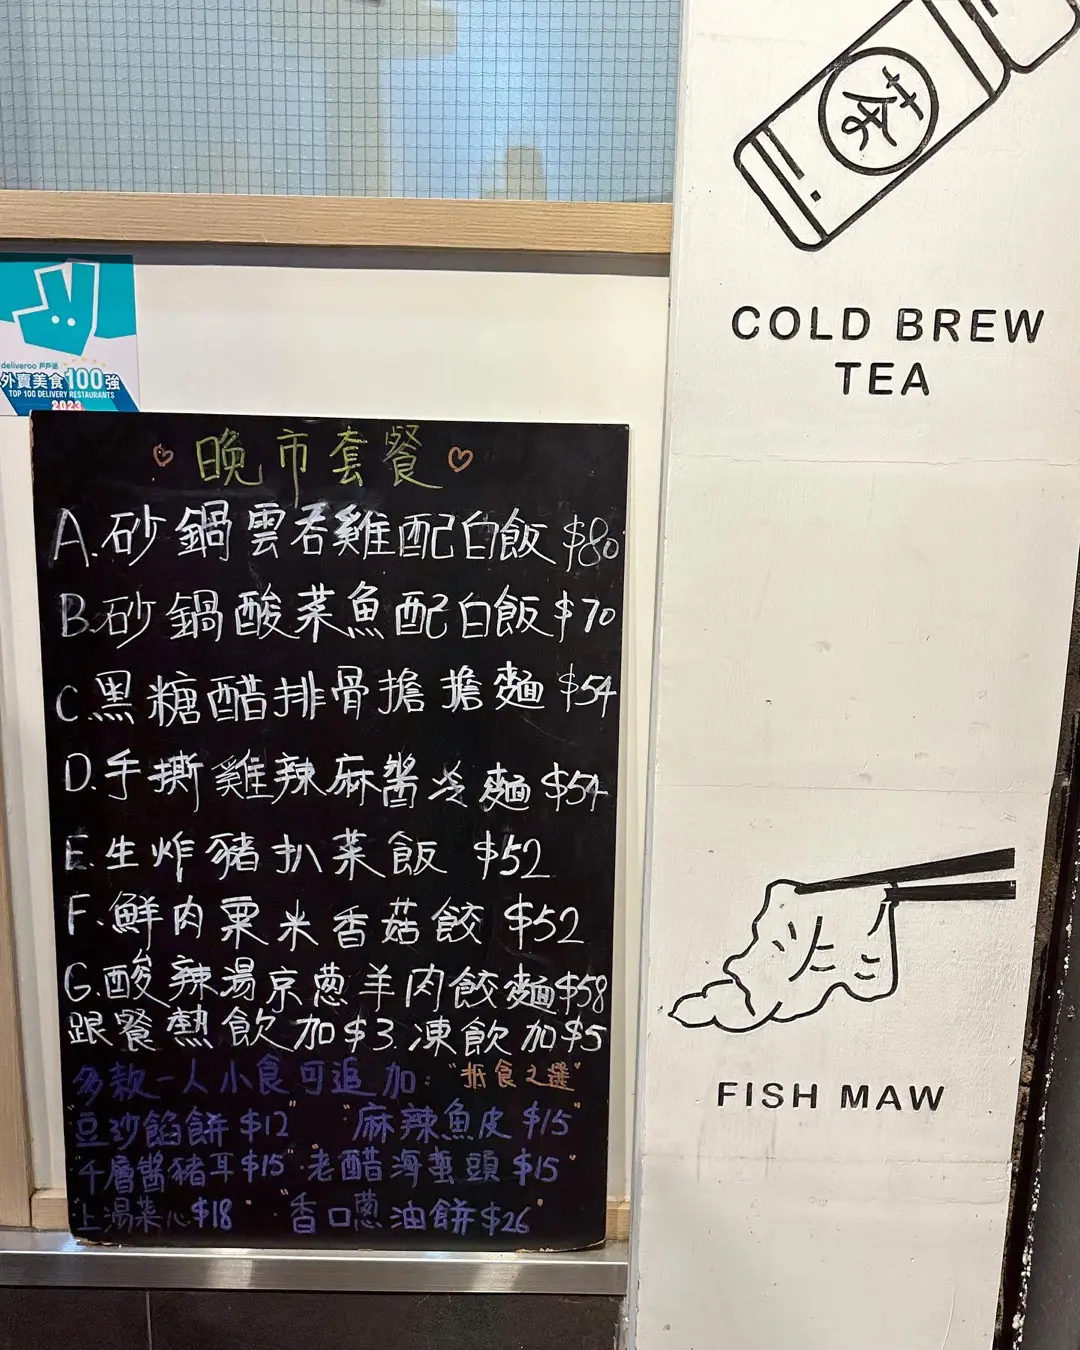 茶
COLD BREW
TEA
deliveroo 戶戶送
外賣美食100強
TOP 100 DELIVERY RESTAURANTS
2023
晚市套餐
A.砂鍋雲吞雞配白飯 $80
B.砂鍋酸菜魚配白飯 $70
C.黑糖醋排骨擔擔麵 $54
D.手撕雞辣麻醬冷麵 $54
E.生炸豬扒菜飯 $52
F.鮮肉粟米香菇餃 $52
G.酸辣湯京蔥羊肉餃麵 $58
跟餐熱飲加$3.凍飲加$5
多款一人小食可追加: "抵食之選"
"豆沙餡餅 $12" "麻辣魚皮 $15"
"千層醬豬耳 $15" "老醋海蜇頭 $15"
"上湯菜心 $18" "香口蔥油餅 $26"
FISH MAW